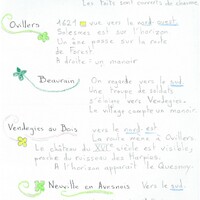 Les toits sont couverts de chaume
Ovillers
1621 vue vers le nord-ouest.
Solesmes est sur l'horizon
Un âne passe sur la route
de Forest.
A droite : un manoir
Beaurain
On regarde vers le sud.
Une troupe de soldats
s'éloigne vers Vendegies.
Le village compte un manoir
Vendegies au Bois vers le nord-est
La route mène à Ovillers.
Le château du XVI° siècle est visible,
proche du ruisseau des Harpies.
A l'horizon apparaît le Quesnoy.
Neuville en Avesnois Vers le sud.